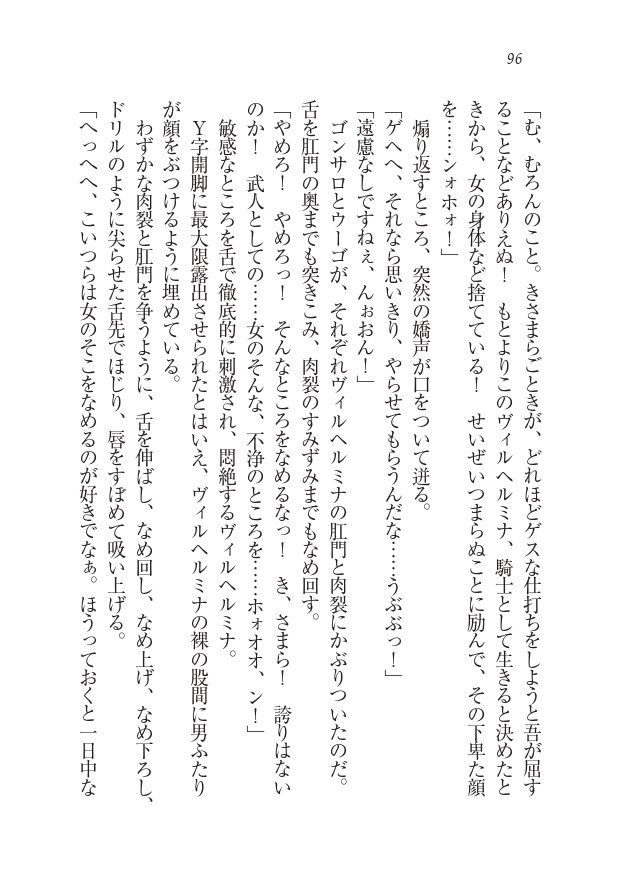 96
「む、むろんのこと。きさまらごときが、どれほどゲスな仕打ちをしようと吾が屈す
ることなどありえぬ！　もとよりこのヴィルヘルミナ、騎士として生きると決めたと
きから、女の身体など捨てている！　せいぜいつまらぬことに励んで、その下卑た顔
を……ンォホォ！」
　煽り返すところ、突然の嬌声が口をついて迸る。
「ゲヘヘ、それなら思いきり、やらせてもらうんだな……うぶぶっ！」
「遠慮なしですねぇ、んぉおん！」
　ゴンサロとウーゴが、それぞれヴィルヘルミナの肛門と肉裂にかぶりついたのだ。
舌を肛門の奥までも突きこみ、肉裂のすみずみまでもなめ回す。
「やめろ！　やめろっ！　そんなところをなめるなっ！　き、さまら！　誇りはない
のか！　武人としての……女のそんな、不浄のところを……ホォオオ、ン！」
　敏感なところを舌で徹底的に刺激され、悶絶するヴィルヘルミナ。
　Ｙ字開脚に最大限露出させられたとはいえ、ヴィルヘルミナの裸の股間に男ふたり
が顔をぶつけるように埋めている。
　わずかな肉裂と肛門を争うように、舌を伸ばし、なめ回し、なめ上げ、なめ下ろし、
ドリルのように尖らせた舌先でほじり、唇をすぼめて吸い上げる。
「へっへへ、こいつらは女のそこをなめるのが好きでなぁ。ほうっておくと一日中な